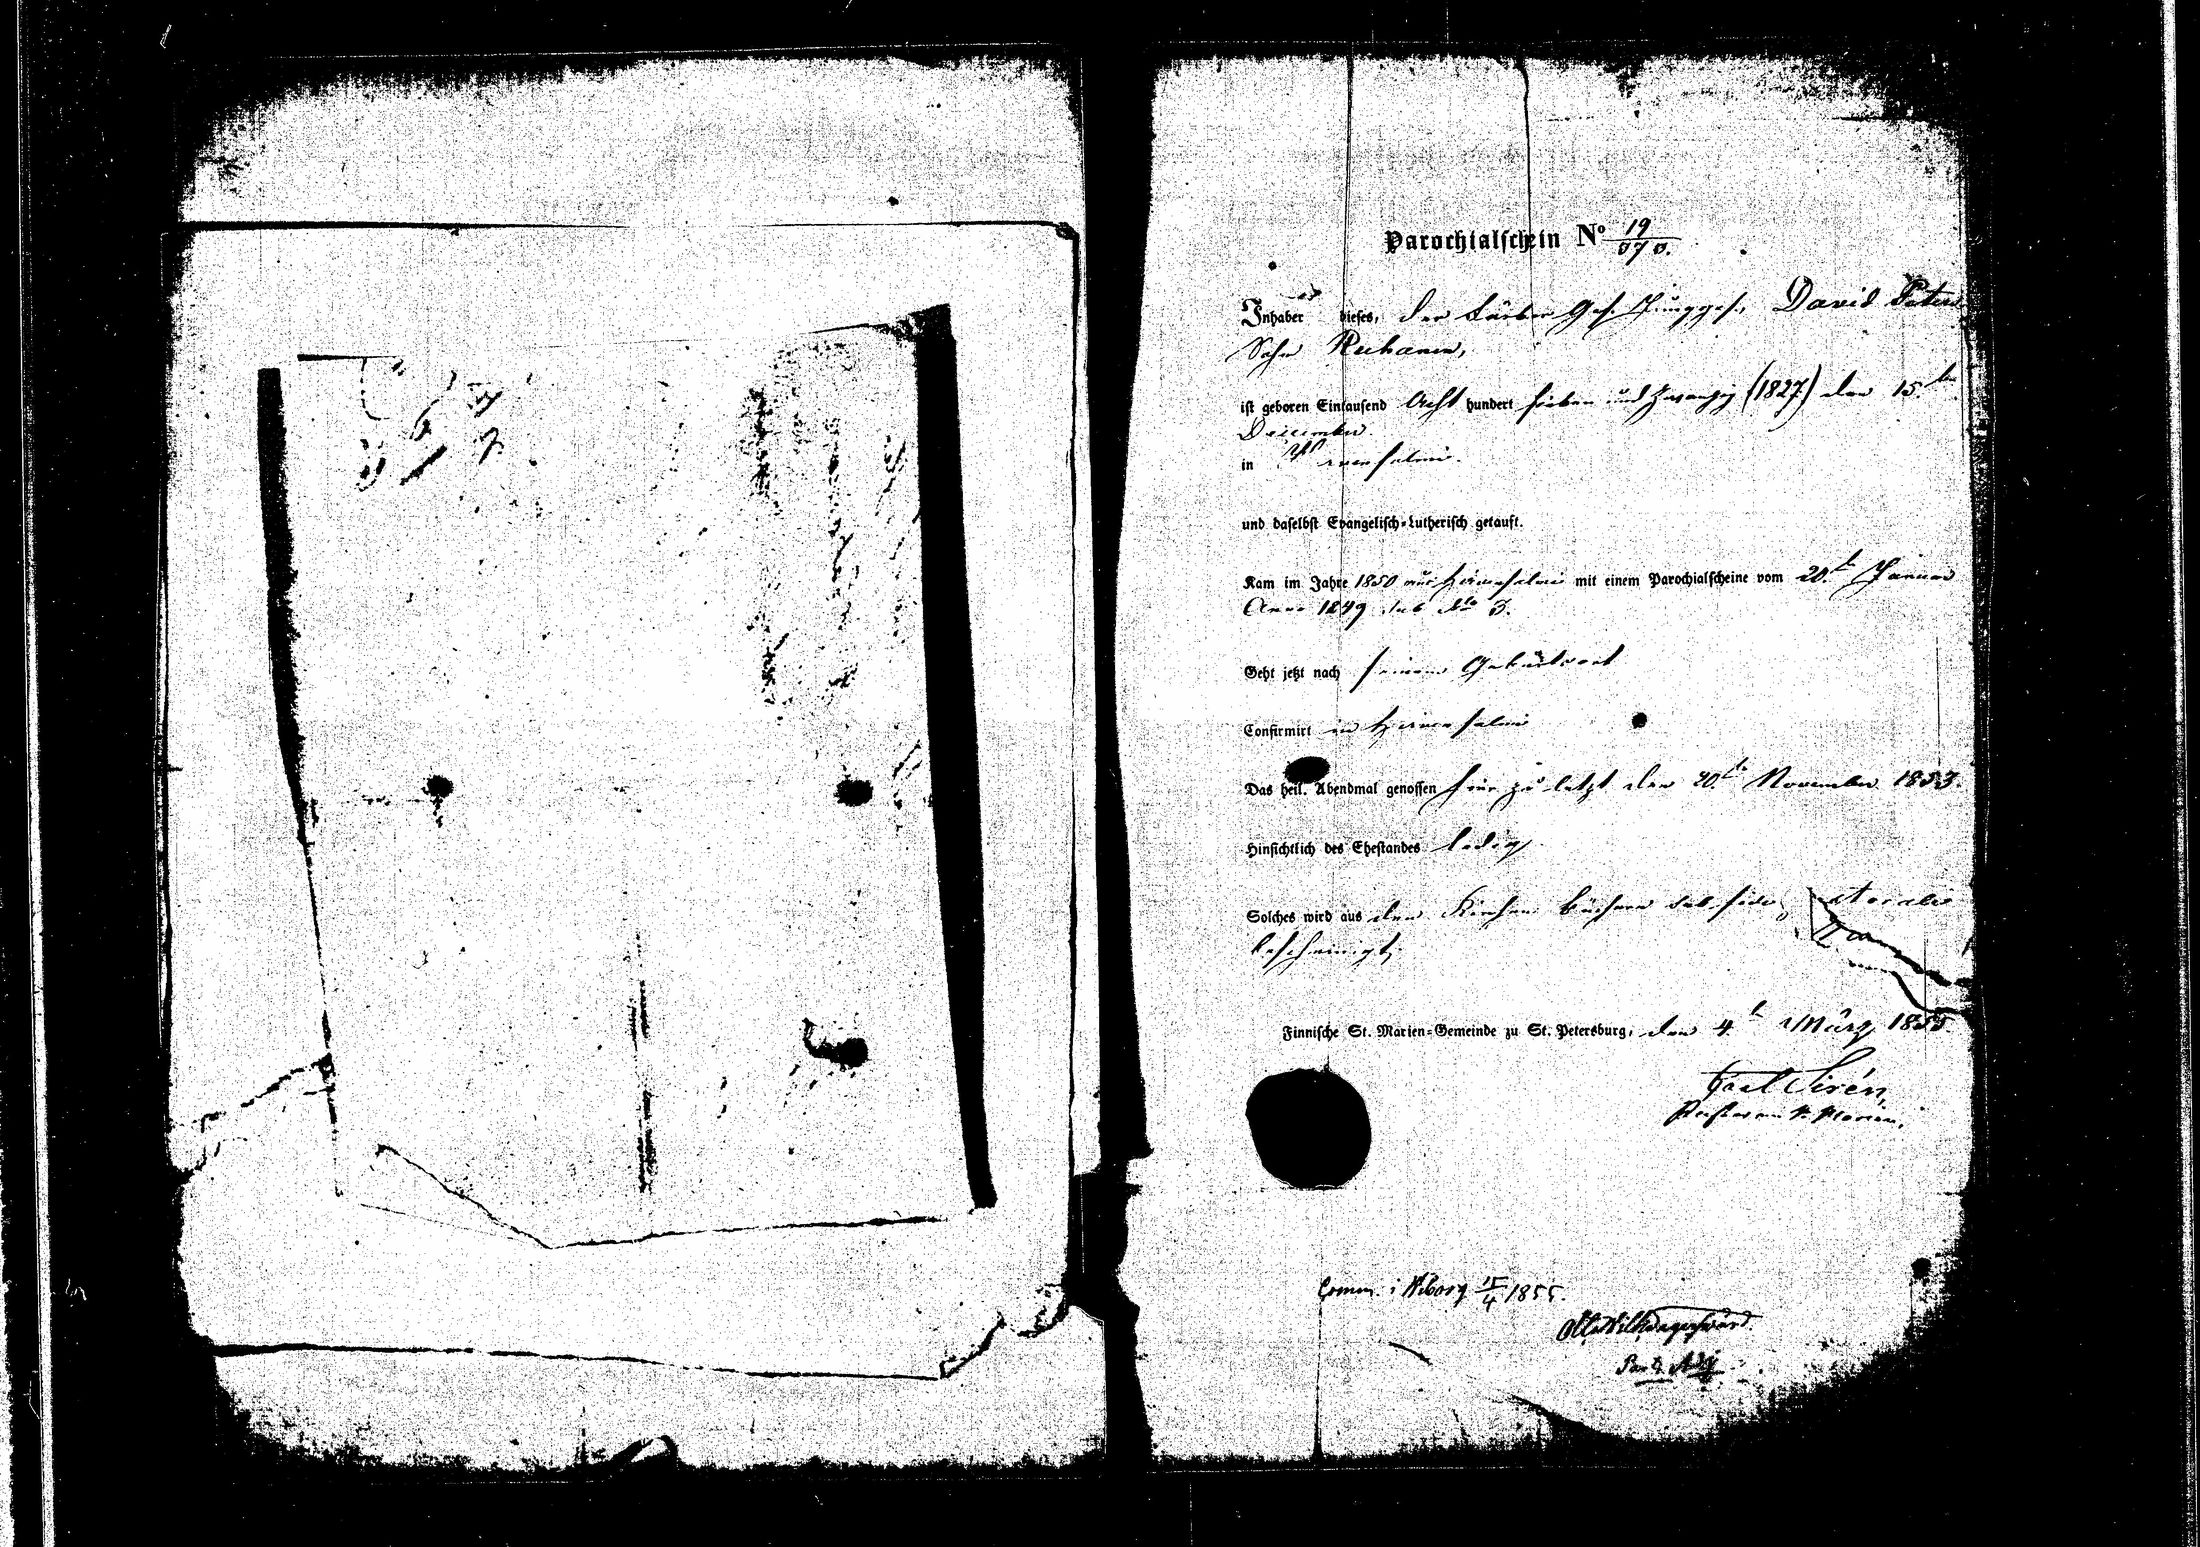 Parochialschein No 19/070.
Inhaber dieses, der Färber Ges. Junggs., David Peters
Sohn Ruhanen,
ist geboren Eintausend Acht hundert sieben und zwanzig (1827) den 15ten
December
in
und daselbst Evangelisch-Lutherisch getauft.
Kam im Jahre 1850 aus mit einem Parochialscheine vom 20.ten Januar
Anno 1849 sub No 3.
Geht jetzt nach seinem Geburtsort
Confirmirt in
Das heil. Abendmal genossen hier zu letzt den 20.ten November 1853.
Hinsichtlich des Ehestandes ledig.
Solches wird aus den Kirchen büchern sub fide pastorali
bescheinigt.
Finnische St. Marien-Gemeinde zu St. Petersburg, den 4.t März 1855
Carl Sirén,
Pastor an St. Marien.
Comm. i Wiborg 15/4 1855.
Past. Adj.